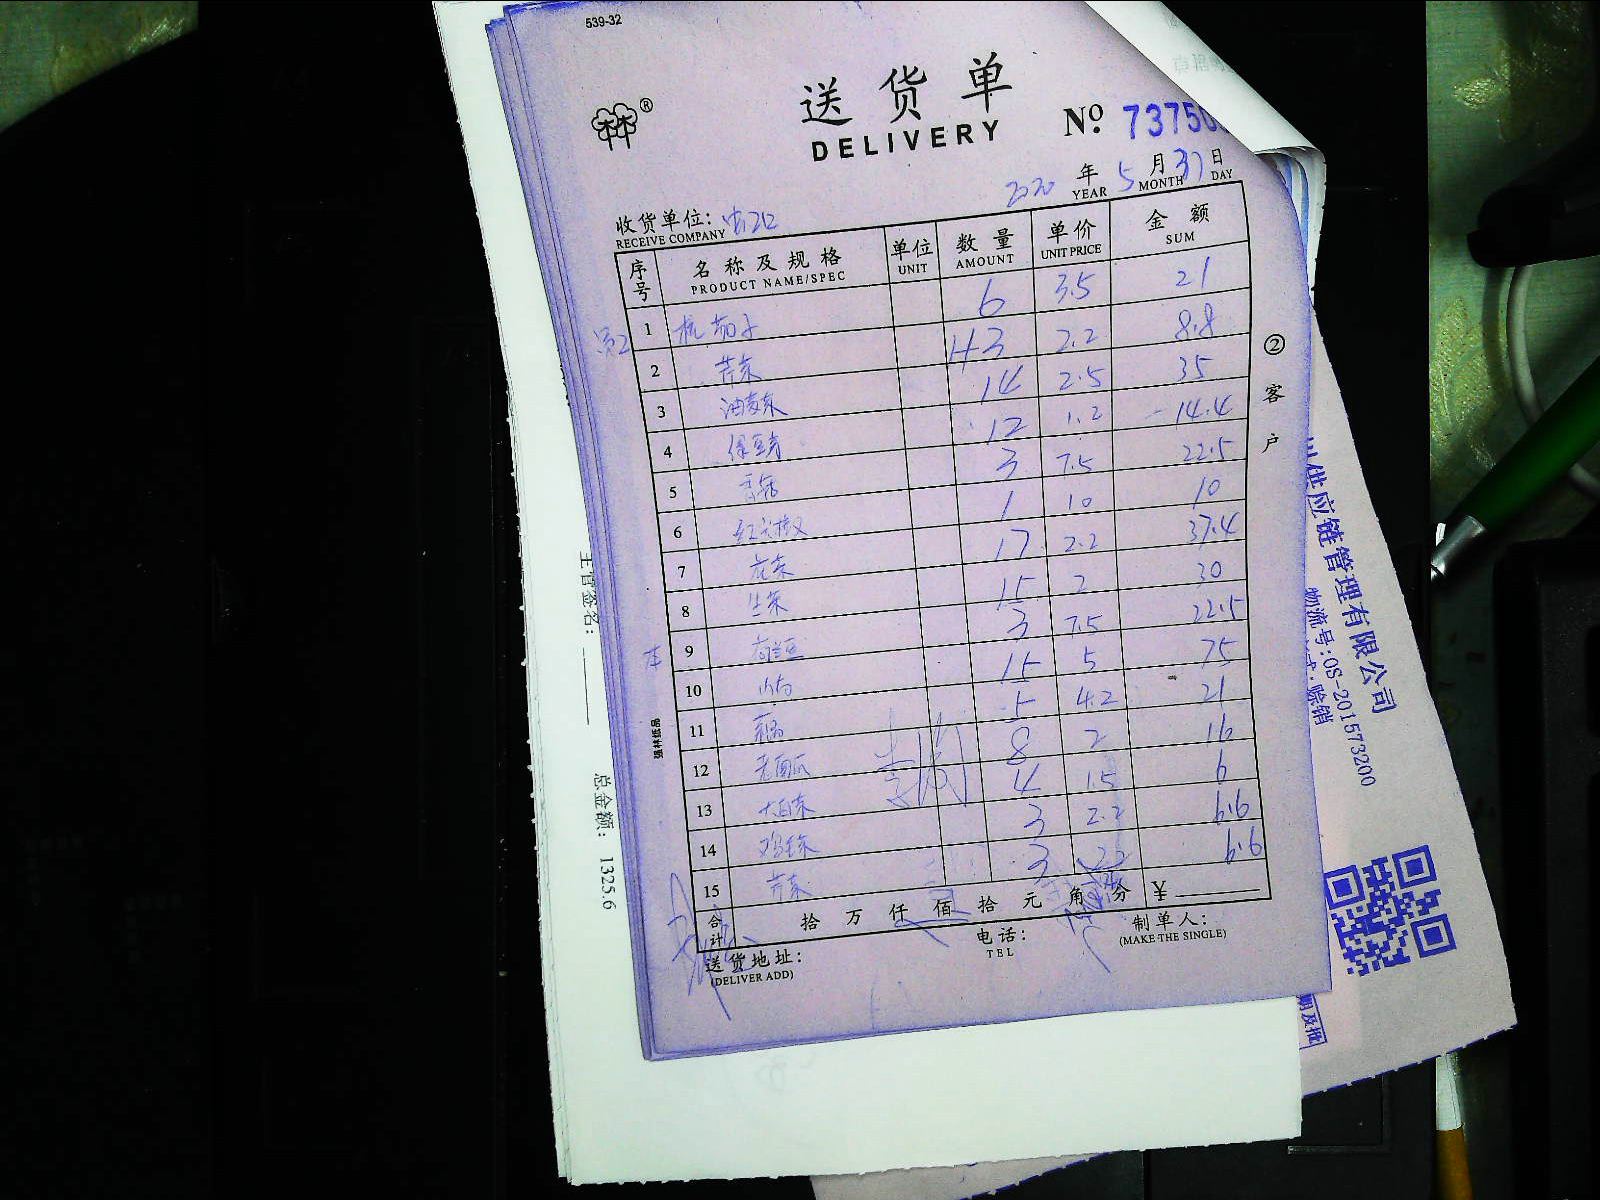 539-32
送货单
DELIVERY
№ 7375
2020 年 5 月 31 日
YEAR MONTH DAY
收货单位:
RECEIVE COMPANY
序号 名称及规格 单位 数量 单价 金额
PRODUCT NAME/SPEC UNIT AMOUNT UNIT PRICE SUM
1 杭茄子 6 3.5 21
2 芹菜 2.2 8.8
3 油麦菜 14 2.5 35
4 绿豆芽 12 1.2 14.4
5 香菇 3 7.5 22.5
6 红尖椒 1 10 10
7 花菜 17 2.2 37.4
8 生菜 15 2 30
9 荷兰豆 3 7.5 22.5
10 15 5 75
11 5 4.2 21
12 老南瓜 8 2 16
13 大白菜 4 1.5 6
14 3 2.2 6.6
15 芹菜 3 2.2 6.6
合计 拾 万 仟 佰 拾 元 角 分 ¥
送货地址:
(DELIVER ADD)
电话:
TEL
制单人:
(MAKE THE SINGLE)
②客户
强林纸品
主管签名:
总金额: 1325.6
供应链管理有限公司
物流号:OS-201573200
赊销